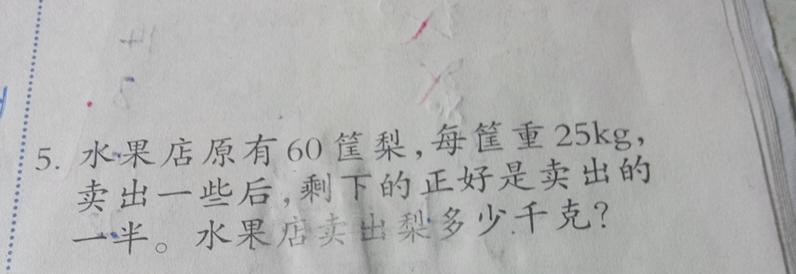 5. 水果店原有60筐梨,每筐重25kg,
卖出一些后,剩下的正好是卖出的
一半。水果店卖出梨多少千克?